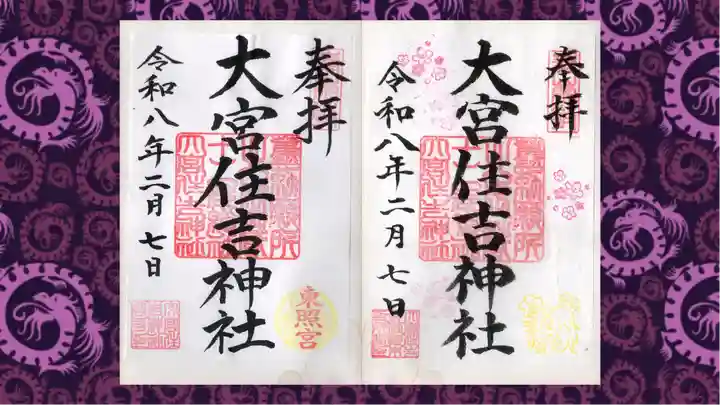 奉拝
大宮住吉神社
令和八年二月七日
東照宮
奉拝
大宮住吉神社
令和八年二月七日